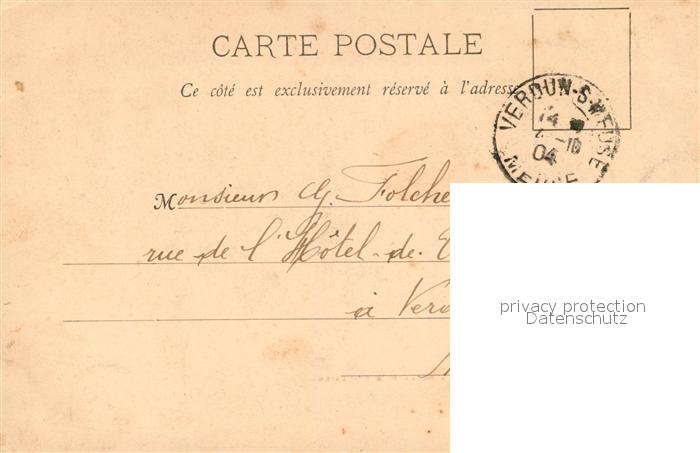 CARTE POSTALE
Ce côté est exclusivement réservé à l'adresse
VERDUN-S-MEUSE
14
10
04
MEUSE
Monsieur G. Folche
rue de l'Hôtel-de-V
à Verd
privacy protection
Datenschutz